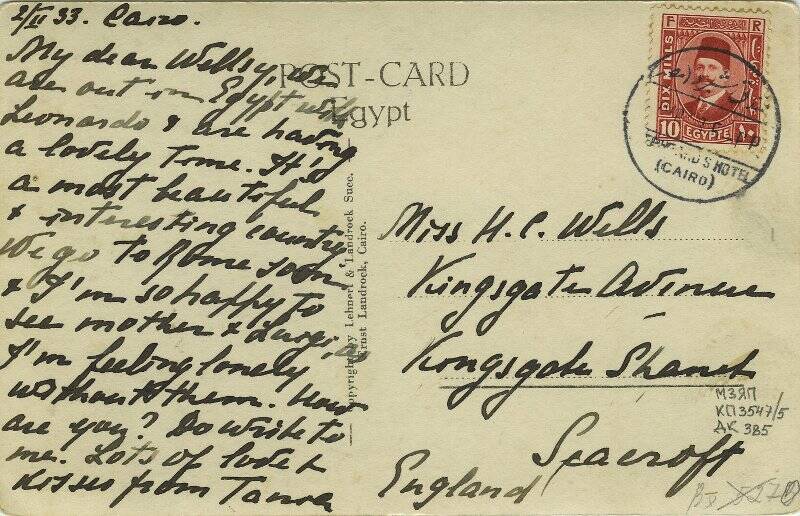 2/II 33. Cairo.
My dear Wellsy, we
are out in Egypt with
Leonardo & are having
a lovely time. It's
a most beautiful
& interesting country
We go to Rome soon
& I'm so happy to
see mother & Luigi, as
I'm feeling lonely
without them. How
are you? Do write to
me. Lots of love &
kisses from
POST-CARD
Egypt
Copyright by Lehnert & Landrock Succ.
Ernst Landrock, Cairo.
F R
DIX MILLS
10 EGYPTE ١٠
HOTEL
(CAIRO)
Miss H. C. Wells
Kingsgate Avenue
Kingsgate
Seacroft
England
МЗЯП
КП3547/5
ДК 385